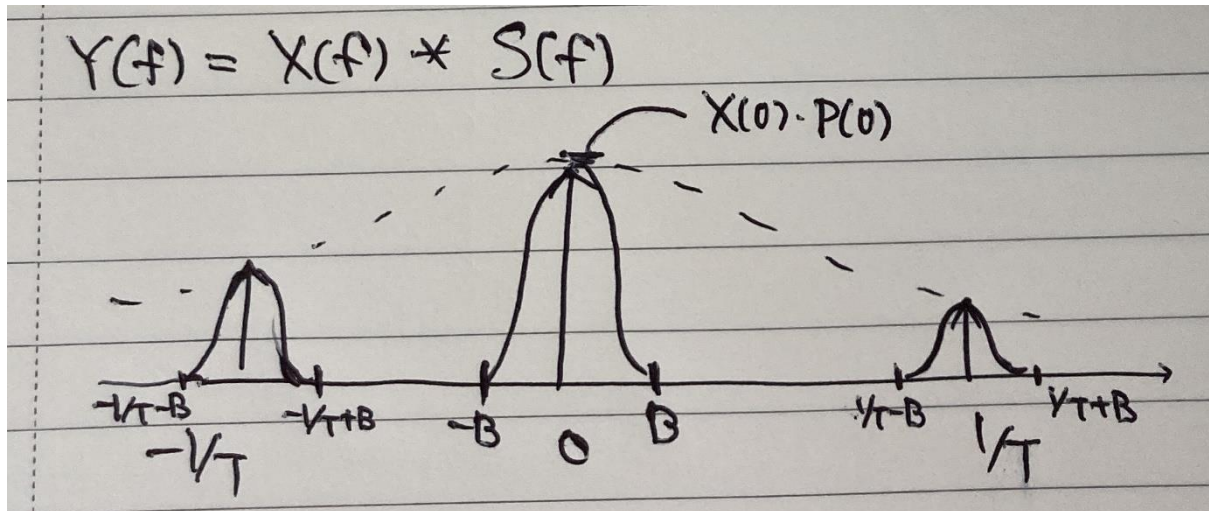 Y(f) = X(f) * S(f)
X(0)·P(0)
-1/T-B
-1/T+B
-B
B
1/T-B
1/T+B
-1/T
0
1/T